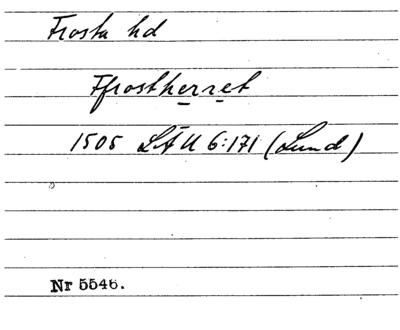 Frosta hd
Ffrostherret
1505 LÄU 6:171 (Lund)
Nr 5546.